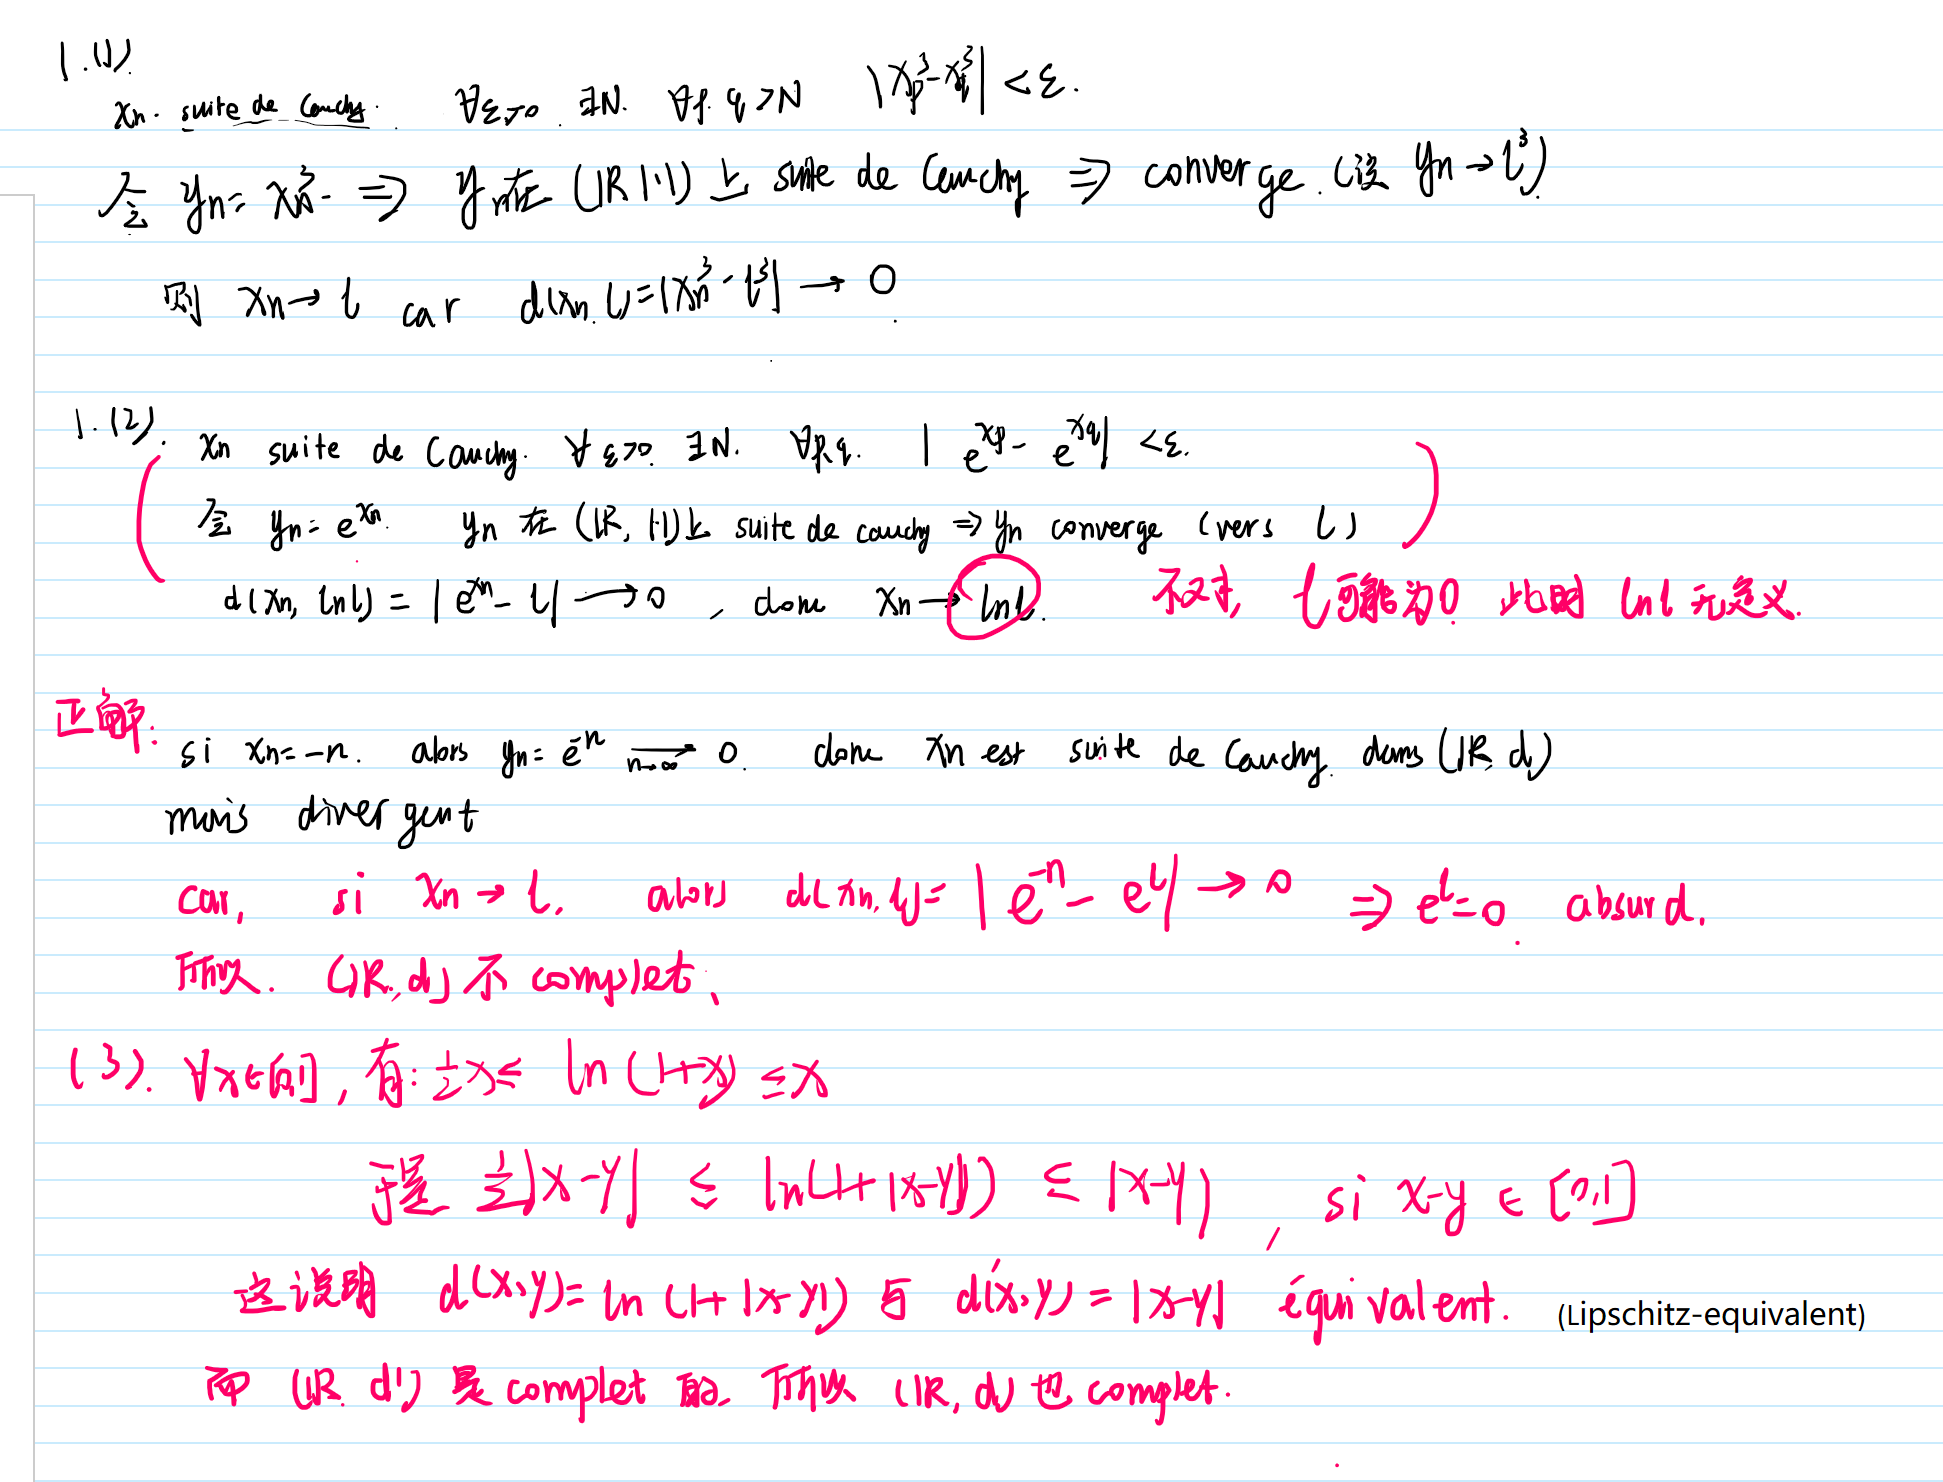 1.(1).
xn. suite de Cauchy. ∀ε>0 ∃N. ∀p.q>N |xp³-xq³|<ε.
令 yn=xn³ ⇒ yn在(ℝ |·|)上 suite de Cauchy ⇒ converge.(设 yn→l³)
则 xn→l car d(xn.l)=|xn³-l³|→0.
1.(2).
xn suite de Cauchy. ∀ε>0. ∃N. ∀p,q. |e^xp - e^xq|<ε.
令 yn=e^xn. yn 在 (ℝ, |·|)上 suite de cauchy ⇒ yn converge (vers l)
d(xn, ln l) = |e^xn - l|→0, donc xn→ln l. 不对, l可能为0 此时 ln l 无定义.
正解:
si xn=-n. alors yn=e^-n →(n→∞) 0. donc xn est suite de Cauchy. dans (ℝ,d)
mais divergent
car, si xn→l, alors d(xn,l)=|e^-n - e^l|→0 ⇒ e^l=0. absurd.
所以. (ℝ,d)不 complet、
(3). ∀x∈[0,1], 有: ½x≤ ln(1+x) ≤x
于是 ½|x-y| ≤ ln(1+|x-y|) ≤ |x-y|, si x-y ∈ [0,1]
这说明 d(x,y)=ln(1+|x-y|) 与 d'(x,y)=|x-y| équivalent. (Lipschitz-equivalent)
而 (ℝ d') 是 complet 的. 所以 (ℝ,d) 也 complet.